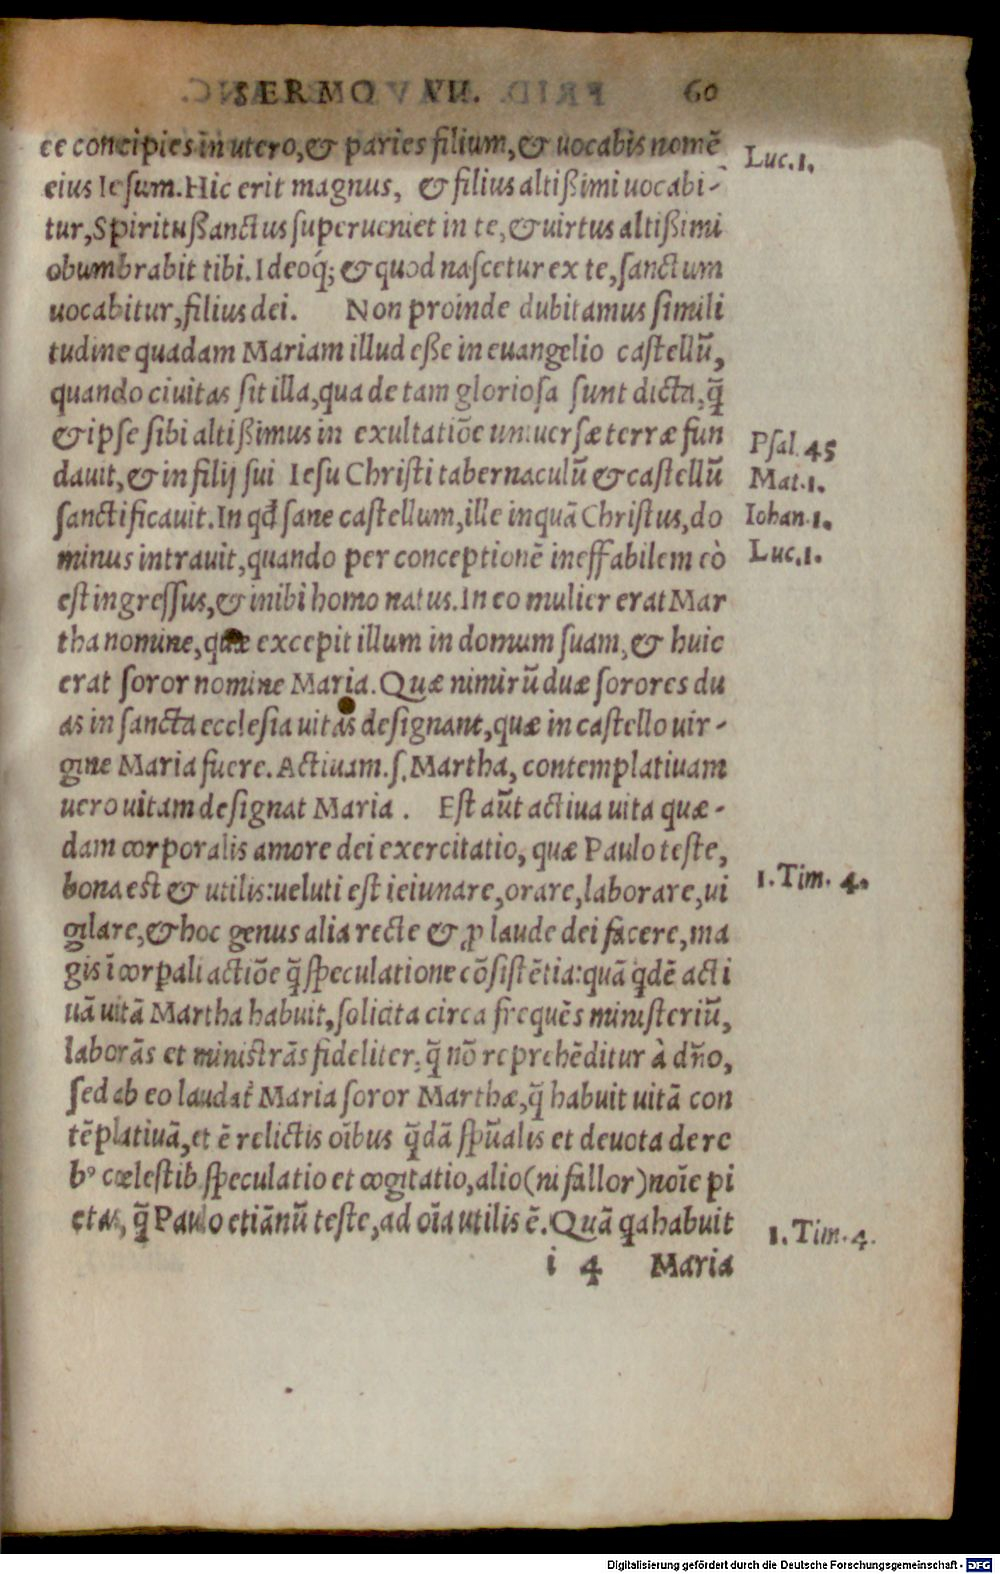 SERMO VII. 60
ce concipies in utero, & paries filium, & uocabis nomē
Luc.1.
eius Iesum. Hic erit magnus, & filius altißimi uocabi-
tur, Spiritußanctus superueniet in te, & uirtus altißimi
obumbrabit tibi. Ideoq́; & quod nascetur ex te, sanctum
uocabitur, filius dei. Non proinde dubitamus simili
tudine quadam Mariam illud eße in euangelio castellū,
quando ciuitas sit illa, qua de tam gloriosa sunt dicta, q̄
& ipse sibi altißimus in exultatiōe uniuersæ terræ fun
Psal.45
dauit, & in filij sui Iesu Christi tabernaculū & castellū
Mat.1.
sanctificauit. In qđ sane castellum, ille inquā Christus, do
Iohan.1.
minus intrauit, quando per conceptionē ineffabilem eò
Luc.1.
est ingressus, & inibi homo natus. In eo mulier erat Mar
tha nomine, quæ excepit illum in domum suam, & huic
erat soror nomine Maria. Quæ nimirū duæ sorores du
as in sancta ecclesia uitas designant, quæ in castello uir-
gine Maria fuere. Actiuam.s. Martha, contemplatiuam
uero uitam designat Maria. Est aūt actiua uita quæ-
dam corporalis amore dei exercitatio, quæ Paulo teste,
bona est & utilis: ueluti est ieiunare, orare, laborare, ui
1.Tim. 4.
gilare, & hoc genus alia recte & ꝓ laude dei facere, ma
gis ī corꝑali actiōe q̄ speculatione cōsistētia: quā qdē acti
uā uitā Martha habuit, solicita circa frequēs ministeriū,
laborās et ministrās fideliter, q̄ nō reprehēditur à dño,
sed ab eo laudat᷑ Maria soror Marthæ, q̄ habuit uitā con
tēplatiuā, et ē relictis oībus q̄dā spūalis et deuota de re
bꝰ cœlestib. speculatio et cogitatio, alio (ni fallor) noīe pi
etas, q̄ Paulo etiānū teste, ad oīa utilis ē. Quā qa habuit
1.Tim.4.
i 4 Maria
Digitalisierung gefördert durch die Deutsche Forschungsgemeinschaft - DFG